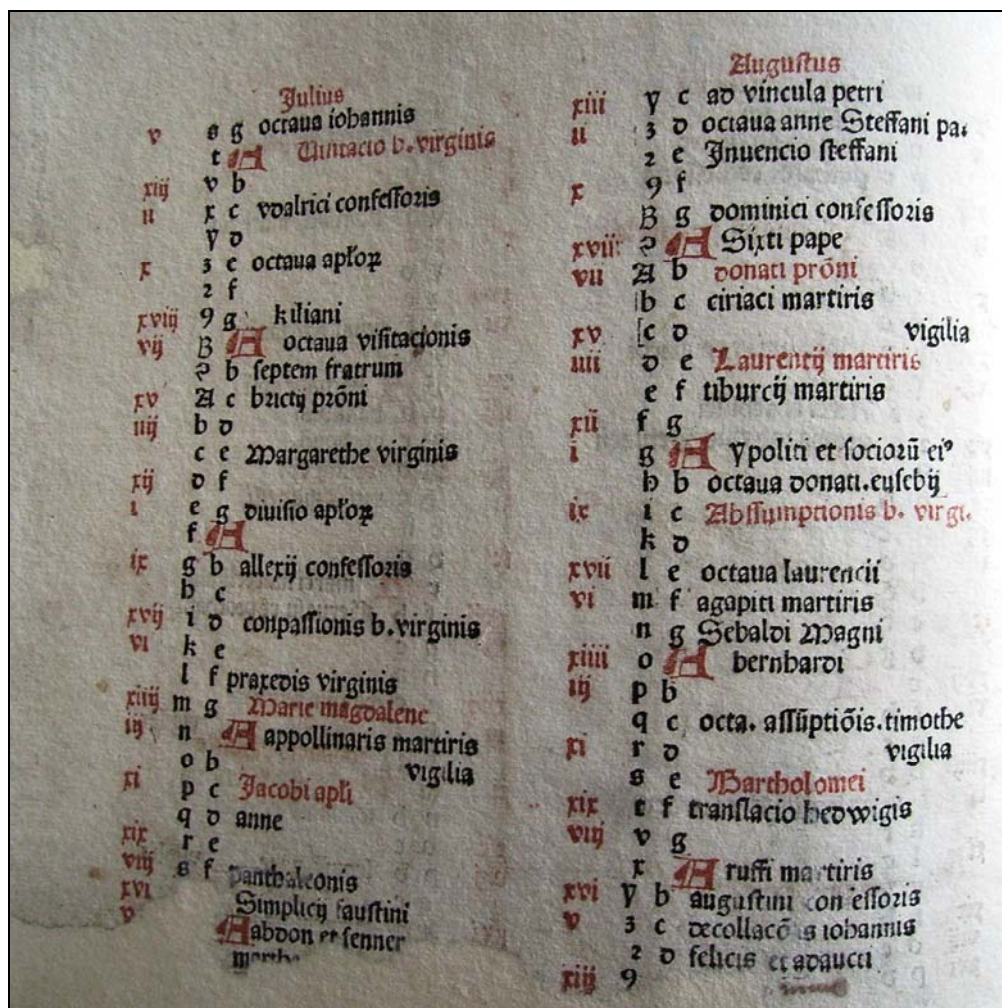 Julius
v s g octaua iohannis
t A Visitacio b. virginis
xij v b
ii x c vdalrici confessoris
y d
x z e octaua aplorꝝ
2 f
xviij 9 g kiliani
vij B A octaua visitacionis
ꝛ b septem fratrum
xv A c brictij prōni
iiij b d
c e Margarethe virginis
xij d f
i e g diuisio aplorꝝ
f A
ix g b allexij confessoris
h c
xvij i d conpassionis b. virginis
vi k e
l f praxedis virginis
xiiij m g Marie magdalene
iij n A appollinaris martiris
o b vigilia
xi p c Jacobi apli
q d anne
xix r e
viij s f panthaleonis
xvi Simplicij faustini
v A abdon et senner
Augustus
xiii y c ad vincula petri
ii z d octaua anne Steffani pa.
2 e Inuencio steffani
x 9 f
B g dominici confessoris
xvii ꝛ A Sixti pape
vii A b donati prōni
b c ciriaci martiris
xv c d vigilia
iiii d e Laurentij martiris
e f tiburcij martiris
xii f g
i g A ypoliti et sociorū ei⁹
h b octaua donati. eusebij
ix i c Abssumptionis b. virgi.
k d
xvii l e octaua laurencii
vi m f agapiti martiris
n g Sebaldi Magni
xiiii o A bernhardi
iij p b
q c octa. assūptiōis. timothe
xi r d vigilia
s e Bartholomei
xix t f translacio hedwigis
viij v g
x A ruffi martiris
xvi y b augustini con essoris
v z c decollacō is iohannis
2 d felicis et adaucti
xiij 9